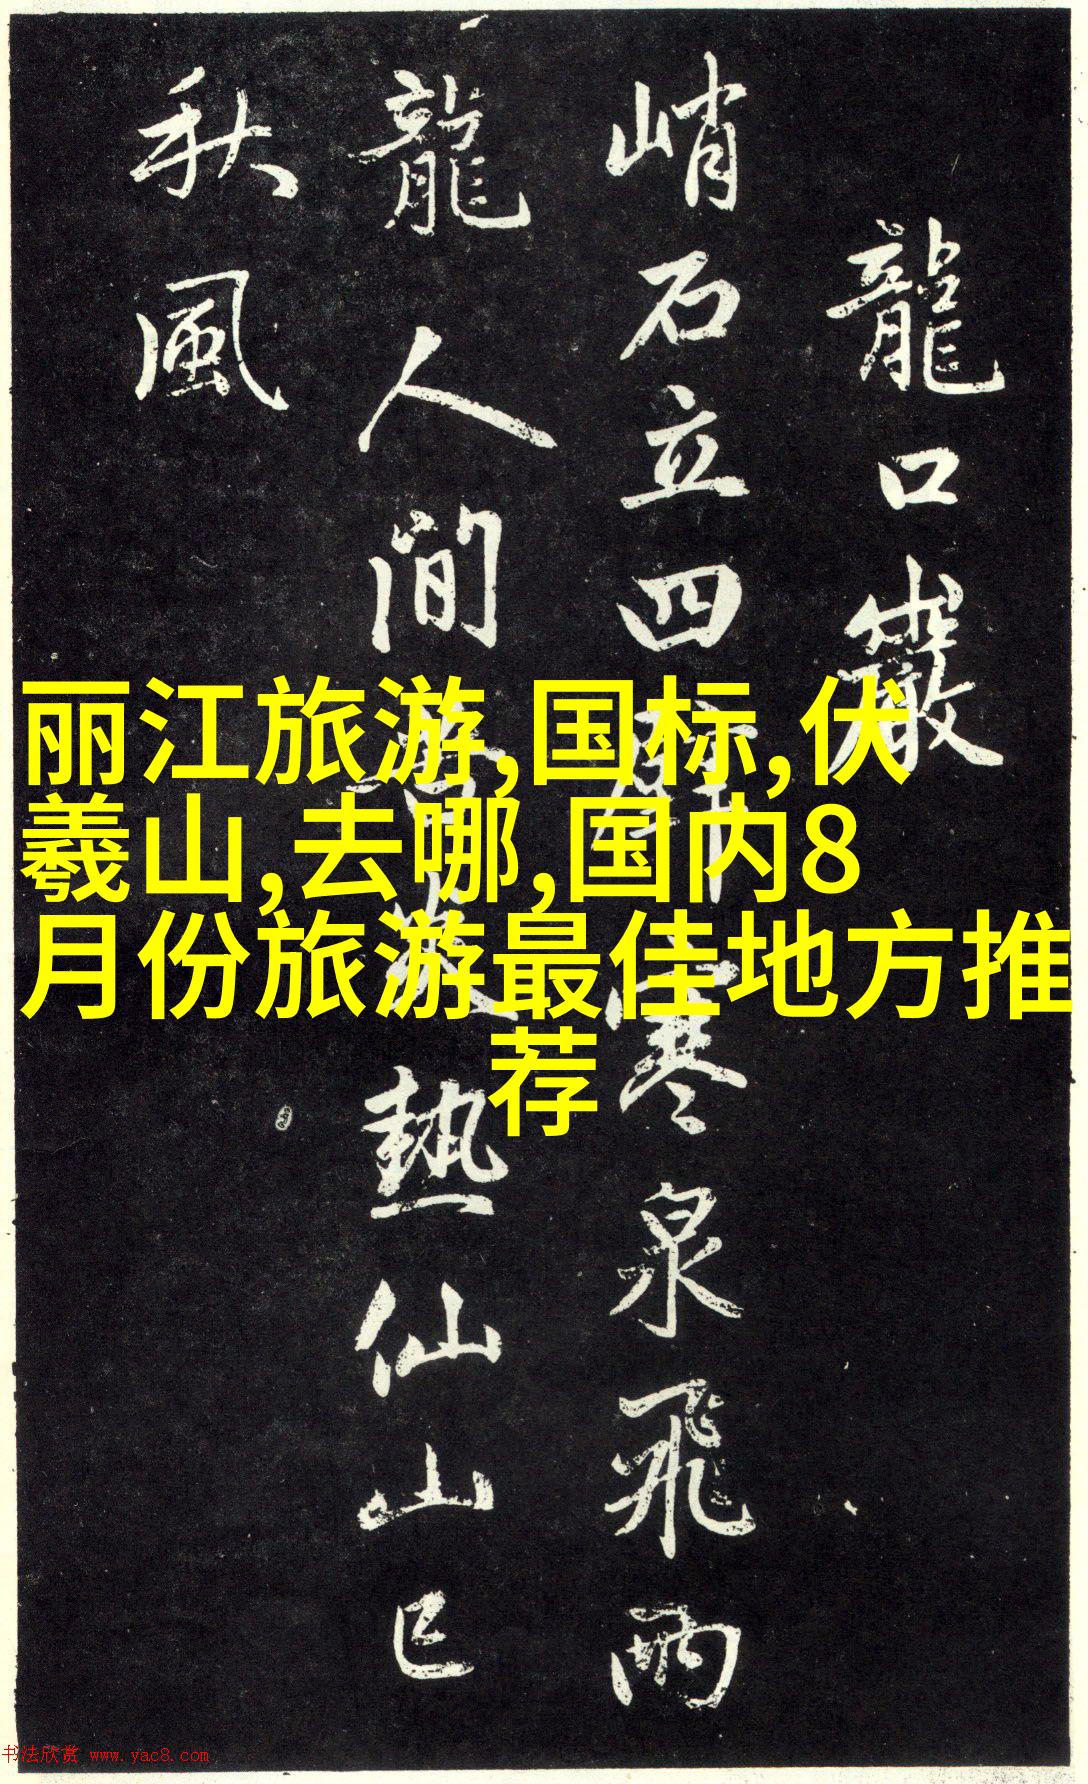 龍口巖
峭石立四壁寒泉飛兩
龍人間苦炎熱仙山已
秋風
丽江旅游,国标,伏
羲山,去哪,国内8
月份旅游最佳地方推
荐
书法欣赏 www.yac8.com